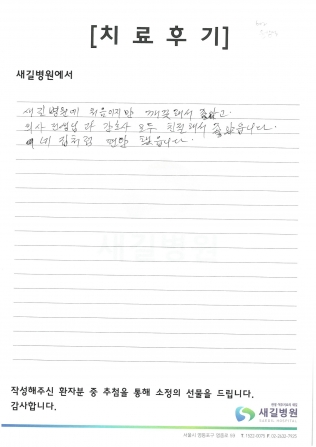 [치료후기]
새길병원에서
새길병원에 처음이지만 깨끗해서 좋았고.
의사 선생님과 간호사 모두 친절해서 좋았습니다.
내 집처럼 편안 했습니다.
새길병원
작성해주신 환자분 중 추첨을 통해 소정의 선물을 드립니다.
감사합니다.
새길병원
SAEGIL HOSPITAL